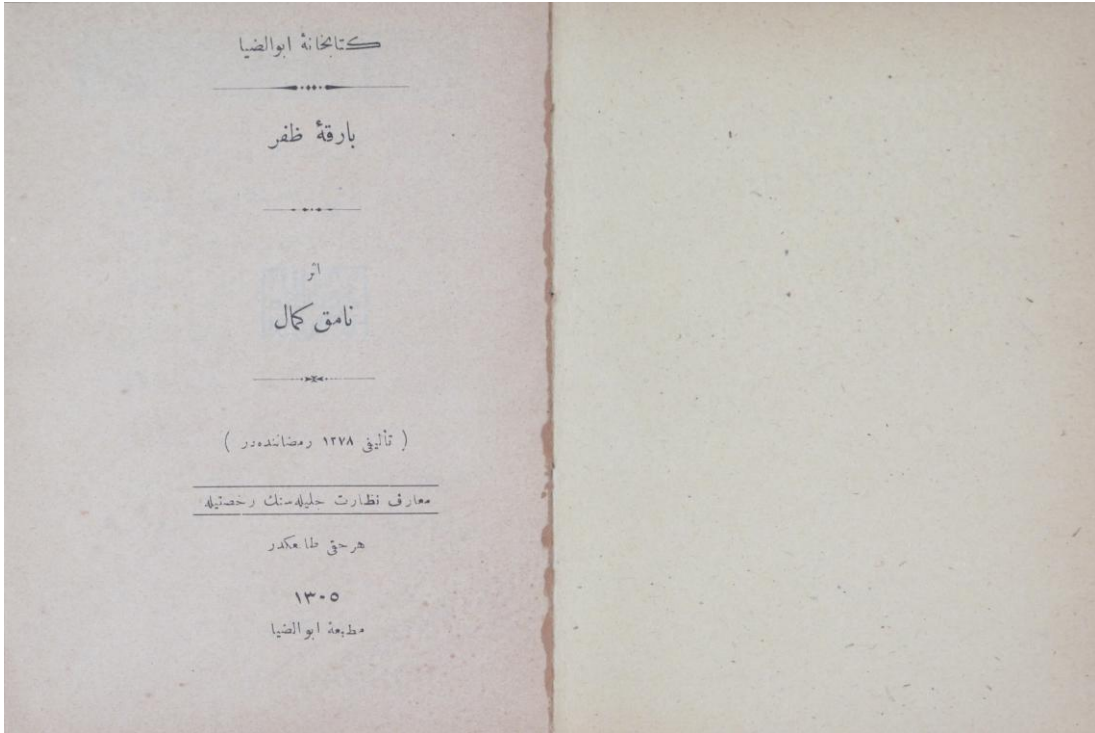 كتابخانۀ ابوالضيا
بارقۀ ظفر
اثر
نامق كمال
( تأليفى ١٢٧٨ رمضاننده‌در )
معارف نظارت جليله‌سنك رخصتيله
هر حقى طابعكدر
١٣٠٥
مطبعۀ ابوالضيا